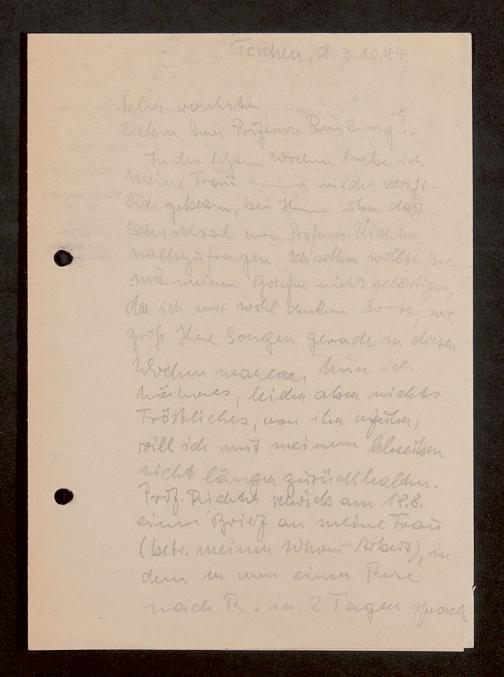 Teschen, d. 3.10.44.
Sehr verehrter,
lieber Herr Professor
In den letzten Wochen habe ich
meine Frau immer wieder
gebeten, bei Ihnen über das
Schicksal von Professor Richter
nachzufragen. Ich selber wollte Sie
mit meinen Briefen nicht belästigen,
da ich mir wohl denken konnte, wie
groß Ihre Sorgen gerade in diesen
Wochen waren. Nun ich
Näheres, leider aber nichts
Tröstliches, von ihr erfuhr,
will ich mit meinem Schreiben
nicht länger zurückhalten.
Prof. Richter schrieb am 18.8.
einen Brief an meine Frau
(betr. meiner Arbeit), in
dem er von einer Reise
nach R. in 2 Tagen sprach